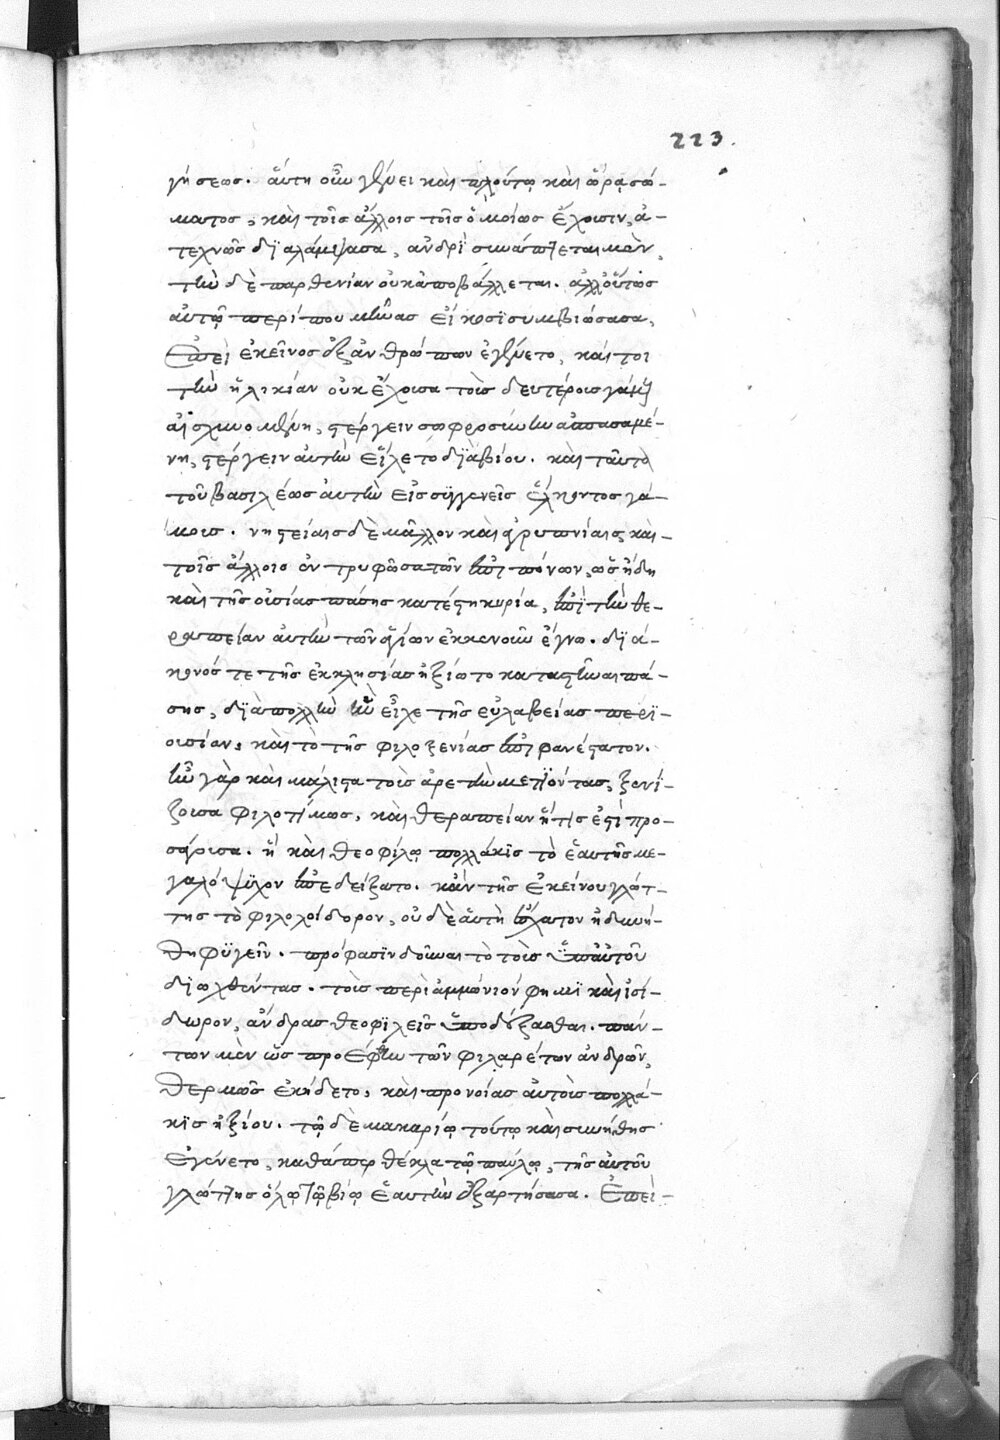 223.
γήσεως. αὕτη οὖν γένει καὶ πλούτῳ καὶ ὥρᾳ σώ-
ματος, καὶ τοῖς ἄλλοις τοῖς ὁμοίως ἔχουσιν, ἀ-
τεχνῶς διαλάμψασα, ἀνδρὶ συνάπτεται μὲν,
τὴν δὲ παρθενίαν οὐκ ἀποβάλλεται. ἀλλ' οὕτως
αὐτῷ περί που μῆνας εἴκοσι συμβιώσασα,
Ἐπεὶ ἐκεῖνος ἐξ ἀνθρώπων ἐγένετο, καί τοι
τὴν ἡλικίαν οὐκ ἔχουσα τοῖς δευτέροις γάμοις
αἰσχυνομένη, στέργειν σωφροσύνην ἀσπασαμέ-
νη, στέργειν αὐτὴν εἵλετο διὰ βίου. καὶ ταῦτα
τοῦ βασιλέως αὐτὴν εἰς συγγενεῖς ἕλκοντος γά-
μοις. νηστείαις δὲ μᾶλλον καὶ ἀγρυπνίαις καὶ
τοῖς ἄλλοις ἐν τρυφῶσα τῶν ἐπιπόνων, ὡς ἤδη
καὶ τῆς οὐσίας πάσης κατέστη κυρία, ἐπὶ τὴν θε-
ραπείαν αὐτὴν τῶν ἁγίων ἐκκενοῦν ἔγνω. διά-
κονός τε τῆς ἐκκλησίας ἠξίωτο καταστῆναι πά-
σης, διὰ πολλὴν ἣν εἶχε τῆς εὐλαβείας περι-
ουσίαν, καὶ τὸ τῆς φιλοξενίας ἐπιφανέστατον.
ἦν γὰρ καὶ μάλιστα τοὺς ἀρετὴν μετιόντας, ξενί-
ζουσα φιλοτίμως, καὶ θεραπείαν ἥτις ἐστὶ προ-
σάγουσα. ἣ καὶ θεοφίλῳ πολλάκις τὸ ἑαυτῆς με-
γαλόψυχον ἐπεδείξατο. κἂν τῆς ἐκείνου γλώτ-
της τὸ φιλολοίδορον, οὐδὲ αὕτη ἔσχατον ἠδυνή-
θη φυγεῖν. πρόφασιν δοῦναι τὸ τοὺς ὑπ' αὐτοῦ
διωχθέντας. τοὺς περὶ ἀμμώνιόν φημι καὶ ἰσί-
δωρον, ἄνδρας θεοφιλεῖς ὑποδέξασθαι. πάν-
των μὲν ὡς προέφην τῶν φιλαρέτων ἀνδρῶν,
θερμῶς ἐκήδετο, καὶ προνοίας αὐτοὺς πολλά-
κις ἠξίου. τῷ δὲ μακαρίῳ τούτῳ καὶ συνήθης
ἐγένετο, καθάπερ θέκλα τῷ παύλῳ, τῆς αὐτοῦ
γλώττης ὅλῳ τῷ βίῳ ἑαυτὴν ἐξαρτήσασα. Ἐπεὶ-